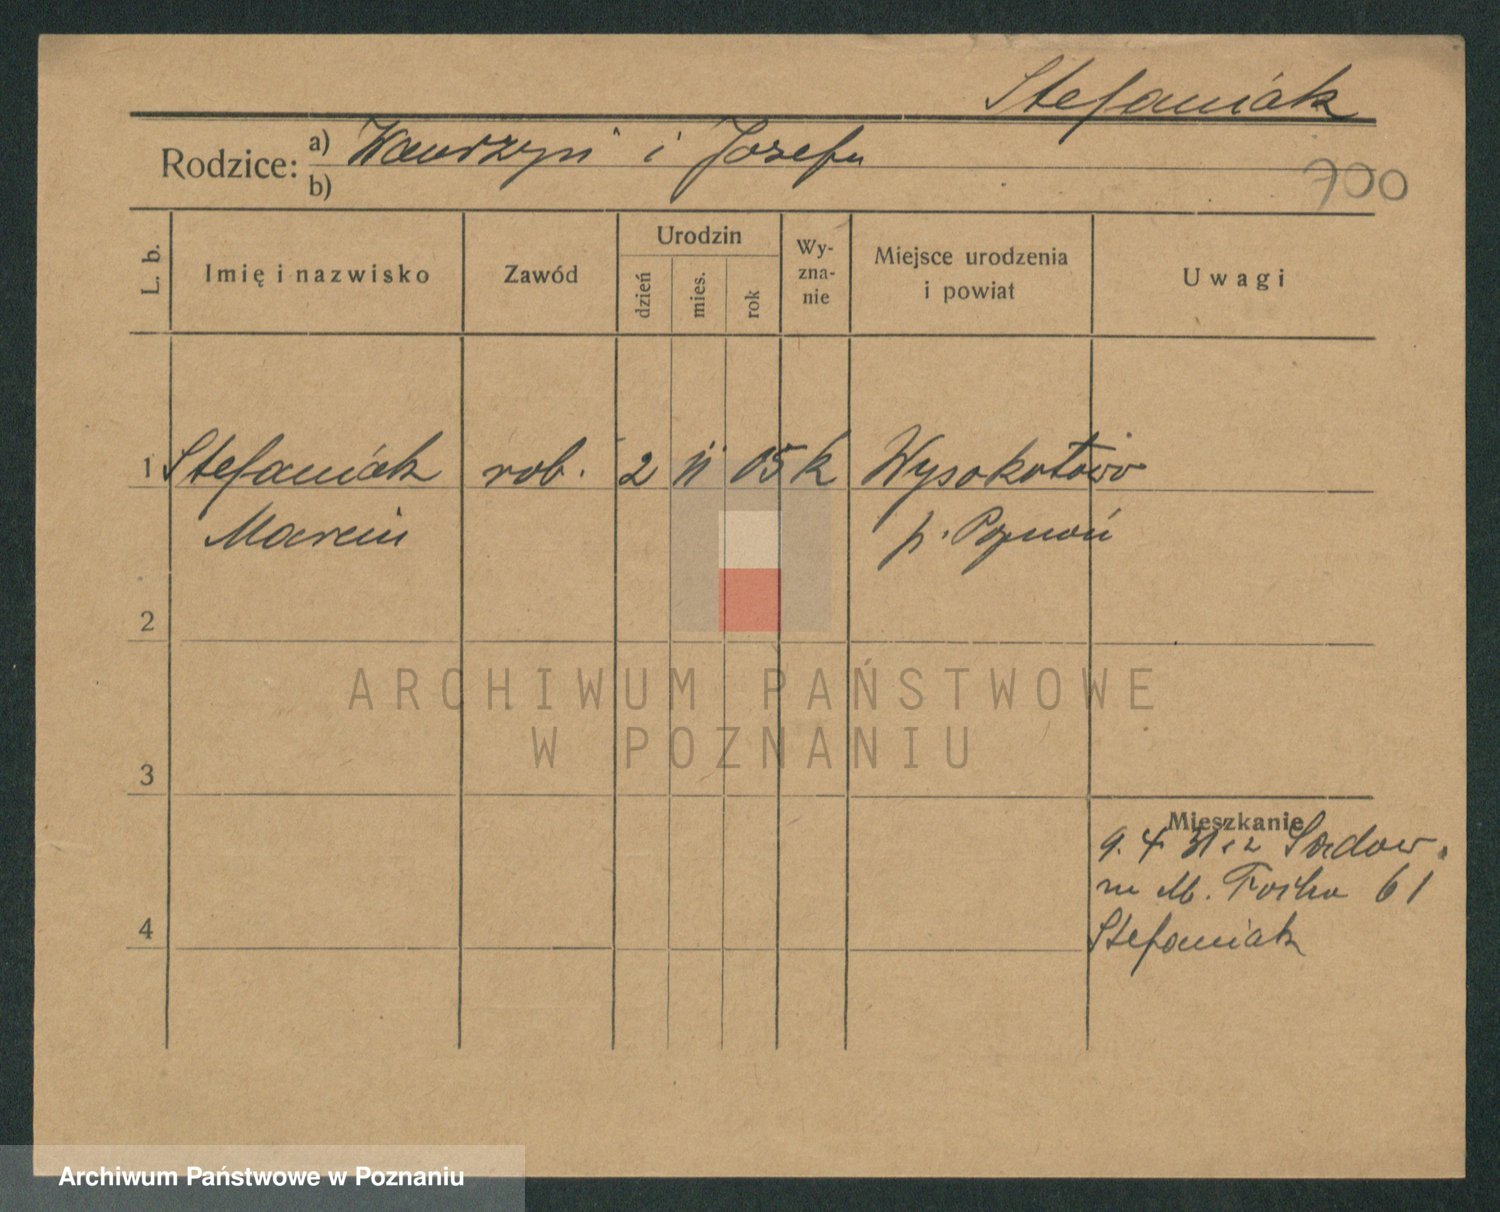 Stefaniak
Rodzice: a) Wawrzyn i Józefa
b)
700
L. b.
Imię i nazwisko
Zawód
Urodzin
dzień
mies.
rok
Wy-
zna-
nie
Miejsce urodzenia
i powiat
Uwagi
1 Stefaniak rob. 2 11 05 k Wysokotowo
Marcin p. Poznań
2
ARCHIWUM PAŃSTWOWE
W POZNANIU
3
Mieszkanie
9. 4. 31 z Sadow.
m M. Focha 61
4
Stefaniak
Archiwum Państwowe w Poznaniu